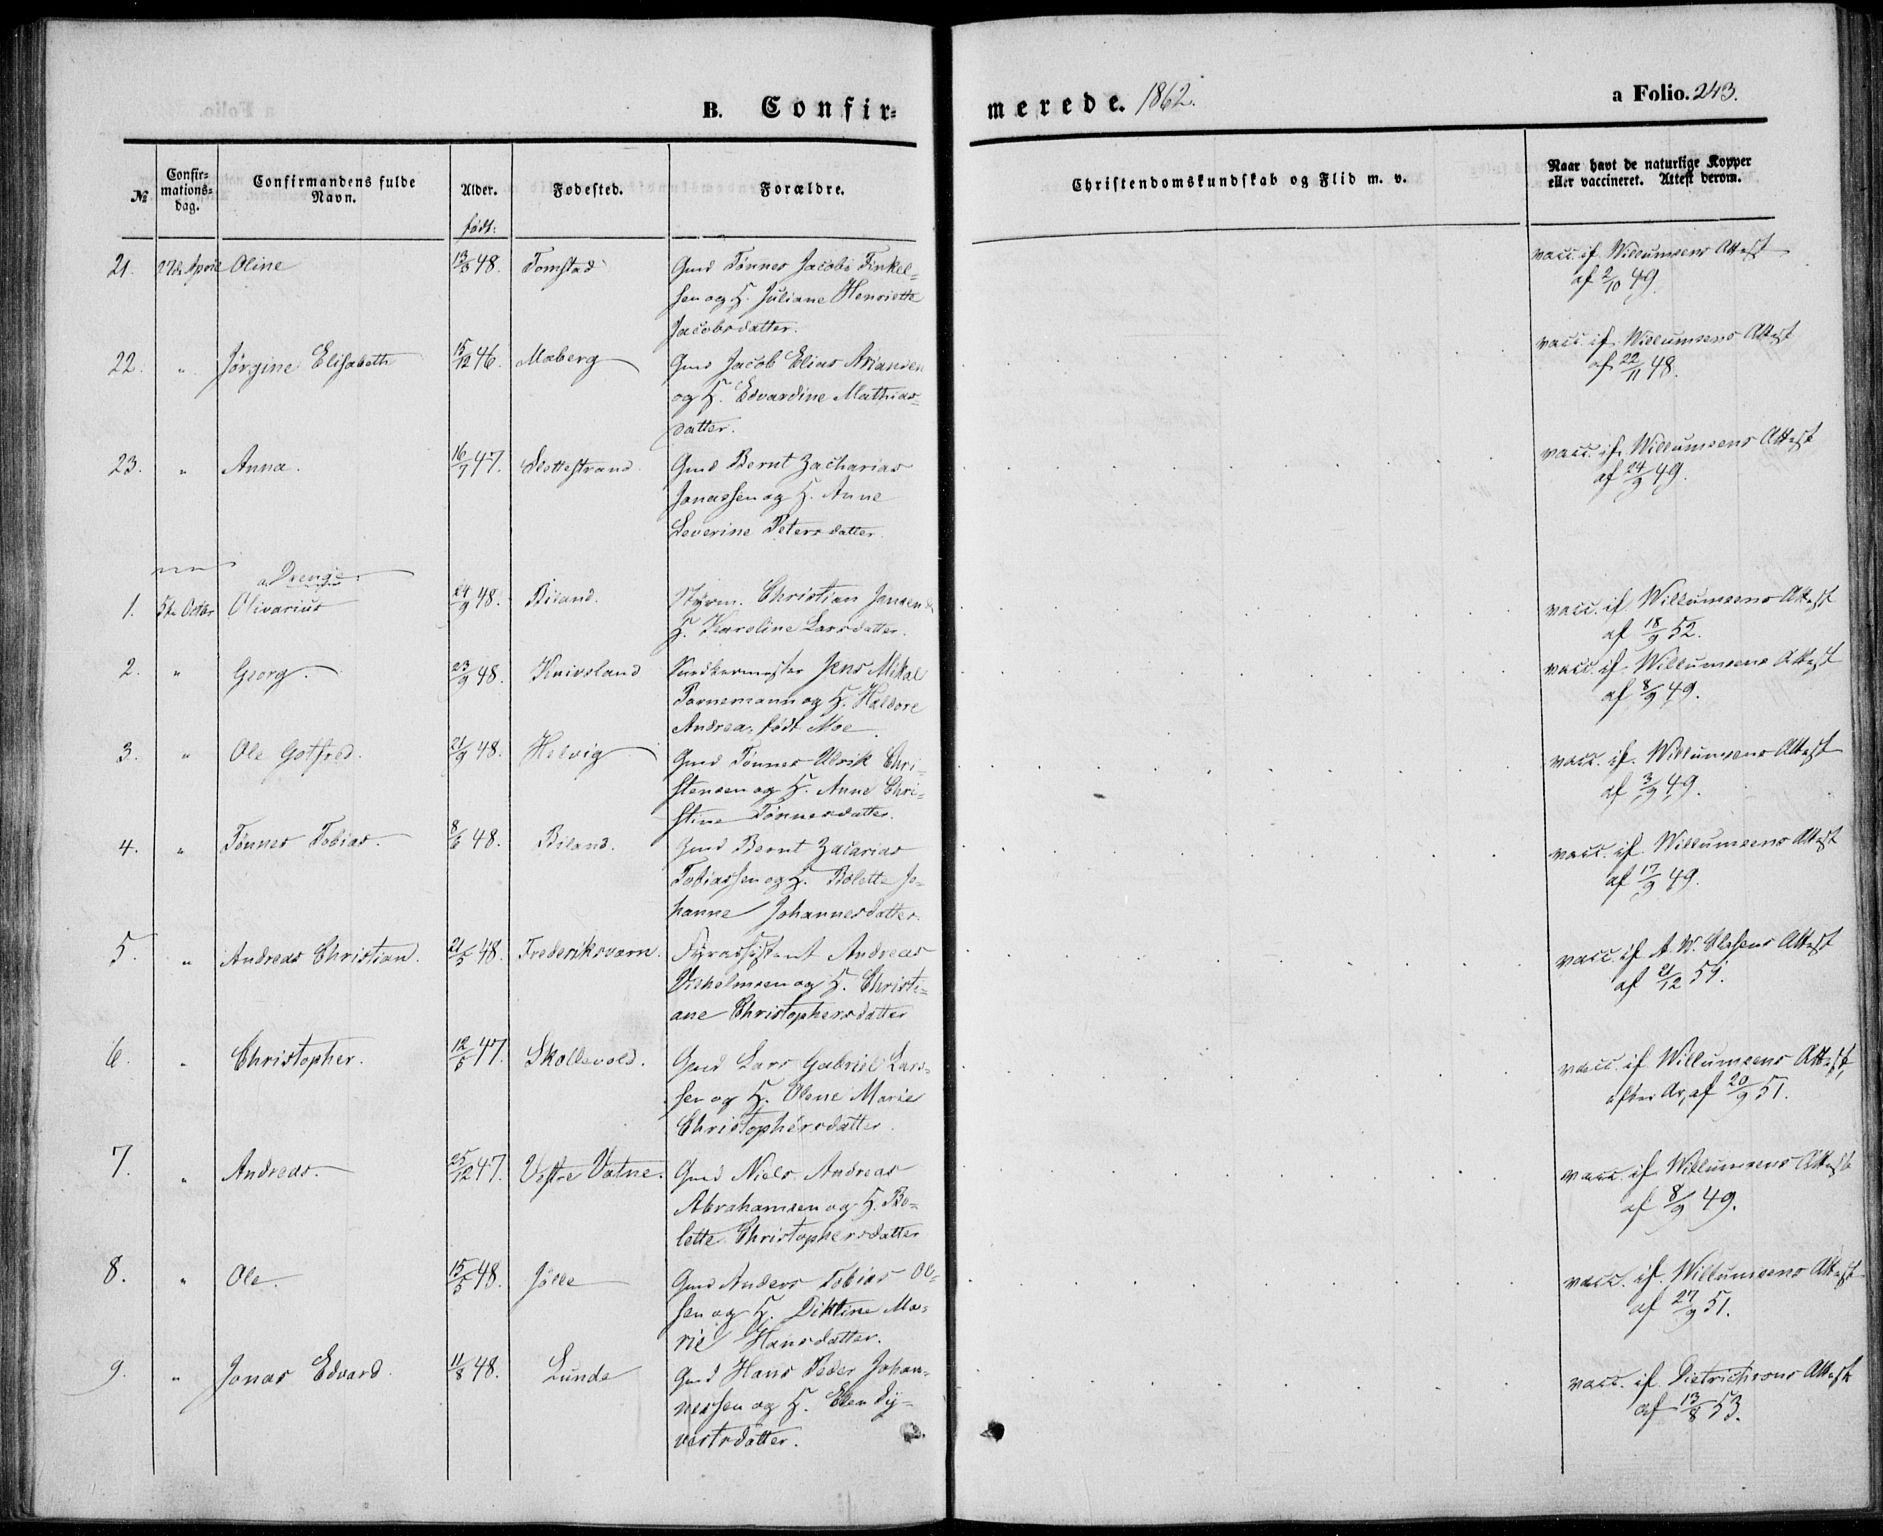 B. Confir-
merede. 1862.
a Folio. 243.
№
Confir-
mations-
dag.
Confirmandens fulde
Navn.
Alder.
født:
Fødested.
Forældre.
Christendomskundskab og Flid m. v.
Naar havt de naturlige Kopper
eller vaccineret. Attest derom.
21. 27de April Oline 13/8 48. Tomstad Gmd Tønnes Jacob Finkel-
sen og H. Juliane Henriette
Jacobsdatter.
vacc. if. Willumsens Attest
af 2/10 49.
22. " Jørgine Elisabeth 15/12 46. Maberg Gmd Jacob Elias Ariansen
og H. Edvardine Mathias-
datter.
vacc. if. Willumsens Attest
af 22/11 48.
23. " Anna. 16/7 47. Slottestrand. Gmd Bernt Zacharias
Jonassen og H. Anne
Severine Petersdatter.
vacc. if. Willumsens Attest
af 24/9 49.
a Drenge.
1. 5te Octbr Olivarius 24/9 48. Biland. Styrm. Christian Jansen &
H. Karoline Larsdatter.
vacc. if. Willumsens Attest
af 18/9 52.
2. " Georg. 23/9 48. Knivsland Jens Mikal
Bornemann og H. Haldore
Andrea, født Moe.
vacc. if. Willumsens Attest
af 8/9 49.
3. " Ole Gotfred. 21/9 48. Helvig Gmd Tønnes Ulrik Chri-
stensen og H. Anne Chri-
stine Tønnesdatter.
vacc. if. Willumsens Attest
af 3/9 49.
4. " Tønnes Tobias. 8/6 48. Biland. Gmd Bernt Zacarias
Tobiassen og H. Bolette Jo-
hanne Johannesdatter.
vacc. if. Willumsens Attest
af 17/9 49.
5. " Andreas Christian. 21/5 48. Frederiksværn. Fyrassistent Andreas
Vilhelmsen og H. Christi-
ane Christophersdatter
vacc. if. A. W. Attest
af 21/12 51.
6. " Christopher. 12/5 47. Skollevold. Gmd Lars Gabriel Lars-
sen og H. Olene Marie
Christophersdatter.
vacc. if. Willumsens Attest,
efter Ar, af 20/9 51.
7. " Andreas. 25/12 47. Vestre Vatne. Gmd Niels Andreas
Abrahamsen og H. Bo-
lette Christophersdatter
vacc. if. Willumsens Attest
af 8/9 49.
8. " Ole. 15/5 48. Jølle Gmd Anders Tobias Ol-
sen og H. Diktine Ma-
rie Hansdatter.
vacc. if. Willumsens Attest
af 27/9 51.
9. " Jonas Edvard. 11/8 48. Lunde Gmd Hans Peder Johan-
nessen og H. Elen Sy-
vertsdatter.
vacc. if. Dietrichsons Attest
af 13/8 53.